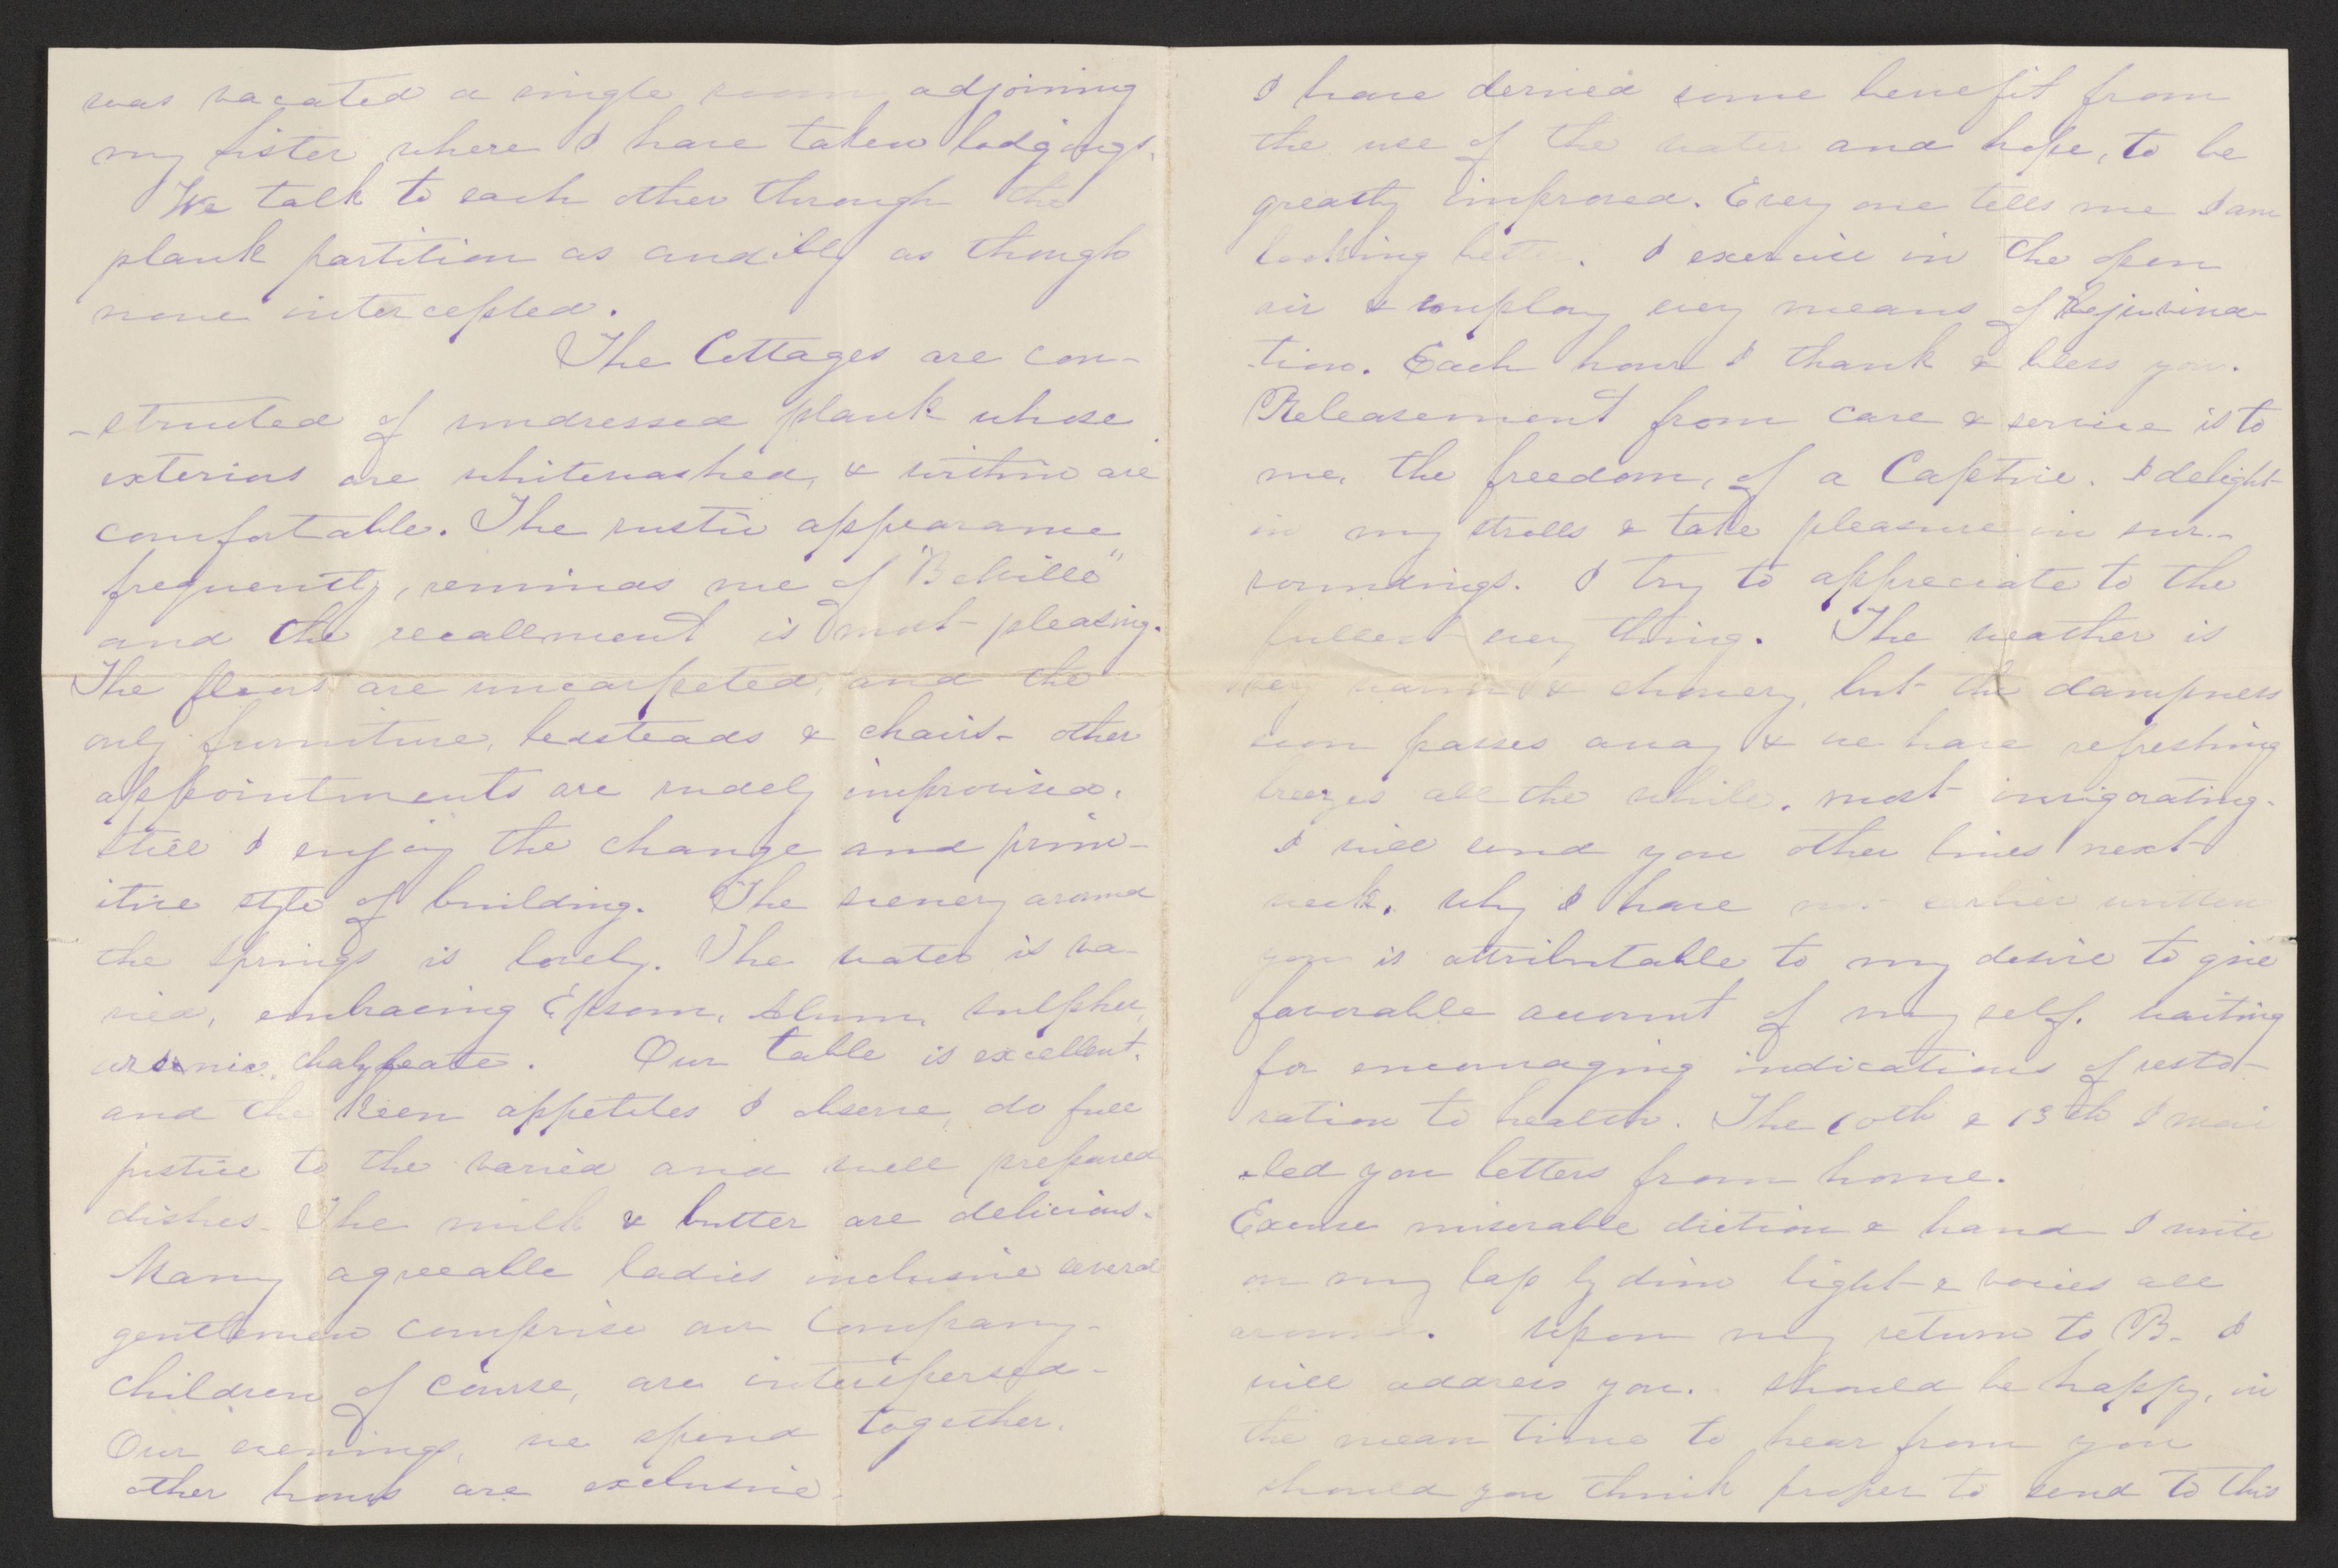 was vacated a single room adjoining
my sister where I have taken lodgings.
We talk to each other through the
plank partition as audibly as though
none intercepted.
The Cottages are con-
-structed of undressed plank whose
exteriors are whitewashed, & within are
comfortable. The rustic appearance
frequently, reminds me of
and the recallment is most pleasing.
The floors are uncarpeted, and the
only furniture, bedsteads & chairs - other
appointments are rudely improvised.
Still I enjoy the change and prim-
itive style of building. The scenery around
the Springs is lovely. The water is va-
ried, embracing Epsom, Alum, sulpher,
arsenic, chalybeate. Our table is excellent.
and the keen appetites I observe, do full
justice to the varied and well prepared
dishes. The milk & butter are delicious.
Many agreeable ladies inclusive several
gentlemen comprise our Company -
children of course, are interspersed -
Our evenings, we spend together.
other hours are exclusive.
I have derived some benefit from
the use of the water and hope, to be
greatly improved. Every one tells me I am
looking better. I exercise in the open
air & employ every means of Rejuvina-
tion. Each hour I thank & bless you.
Releasement from care & service is to
me, the freedom, of a Captive. I delight
in my strolls & take pleasure in sur-
roundings. I try to appreciate to the
fullest every thing. The weather is
very warm & showery, but the dampness
soon passes away & we have refreshing
breezes all the while, most invigorating.
I will send you other lines next
week. Why I have not earlier written
you is attributable to my desire to give
favorable account of my self. waiting
for encouraging indications of resto-
ration to health. The 10th & 13th I mai
-led you letters from home.
Excuse miserable diction & hand I write
on my lap by dim light & voices all
around. Upon my return to B. I
will address you. should be happy, in
the mean time to hear from you
should you think proper to send to this